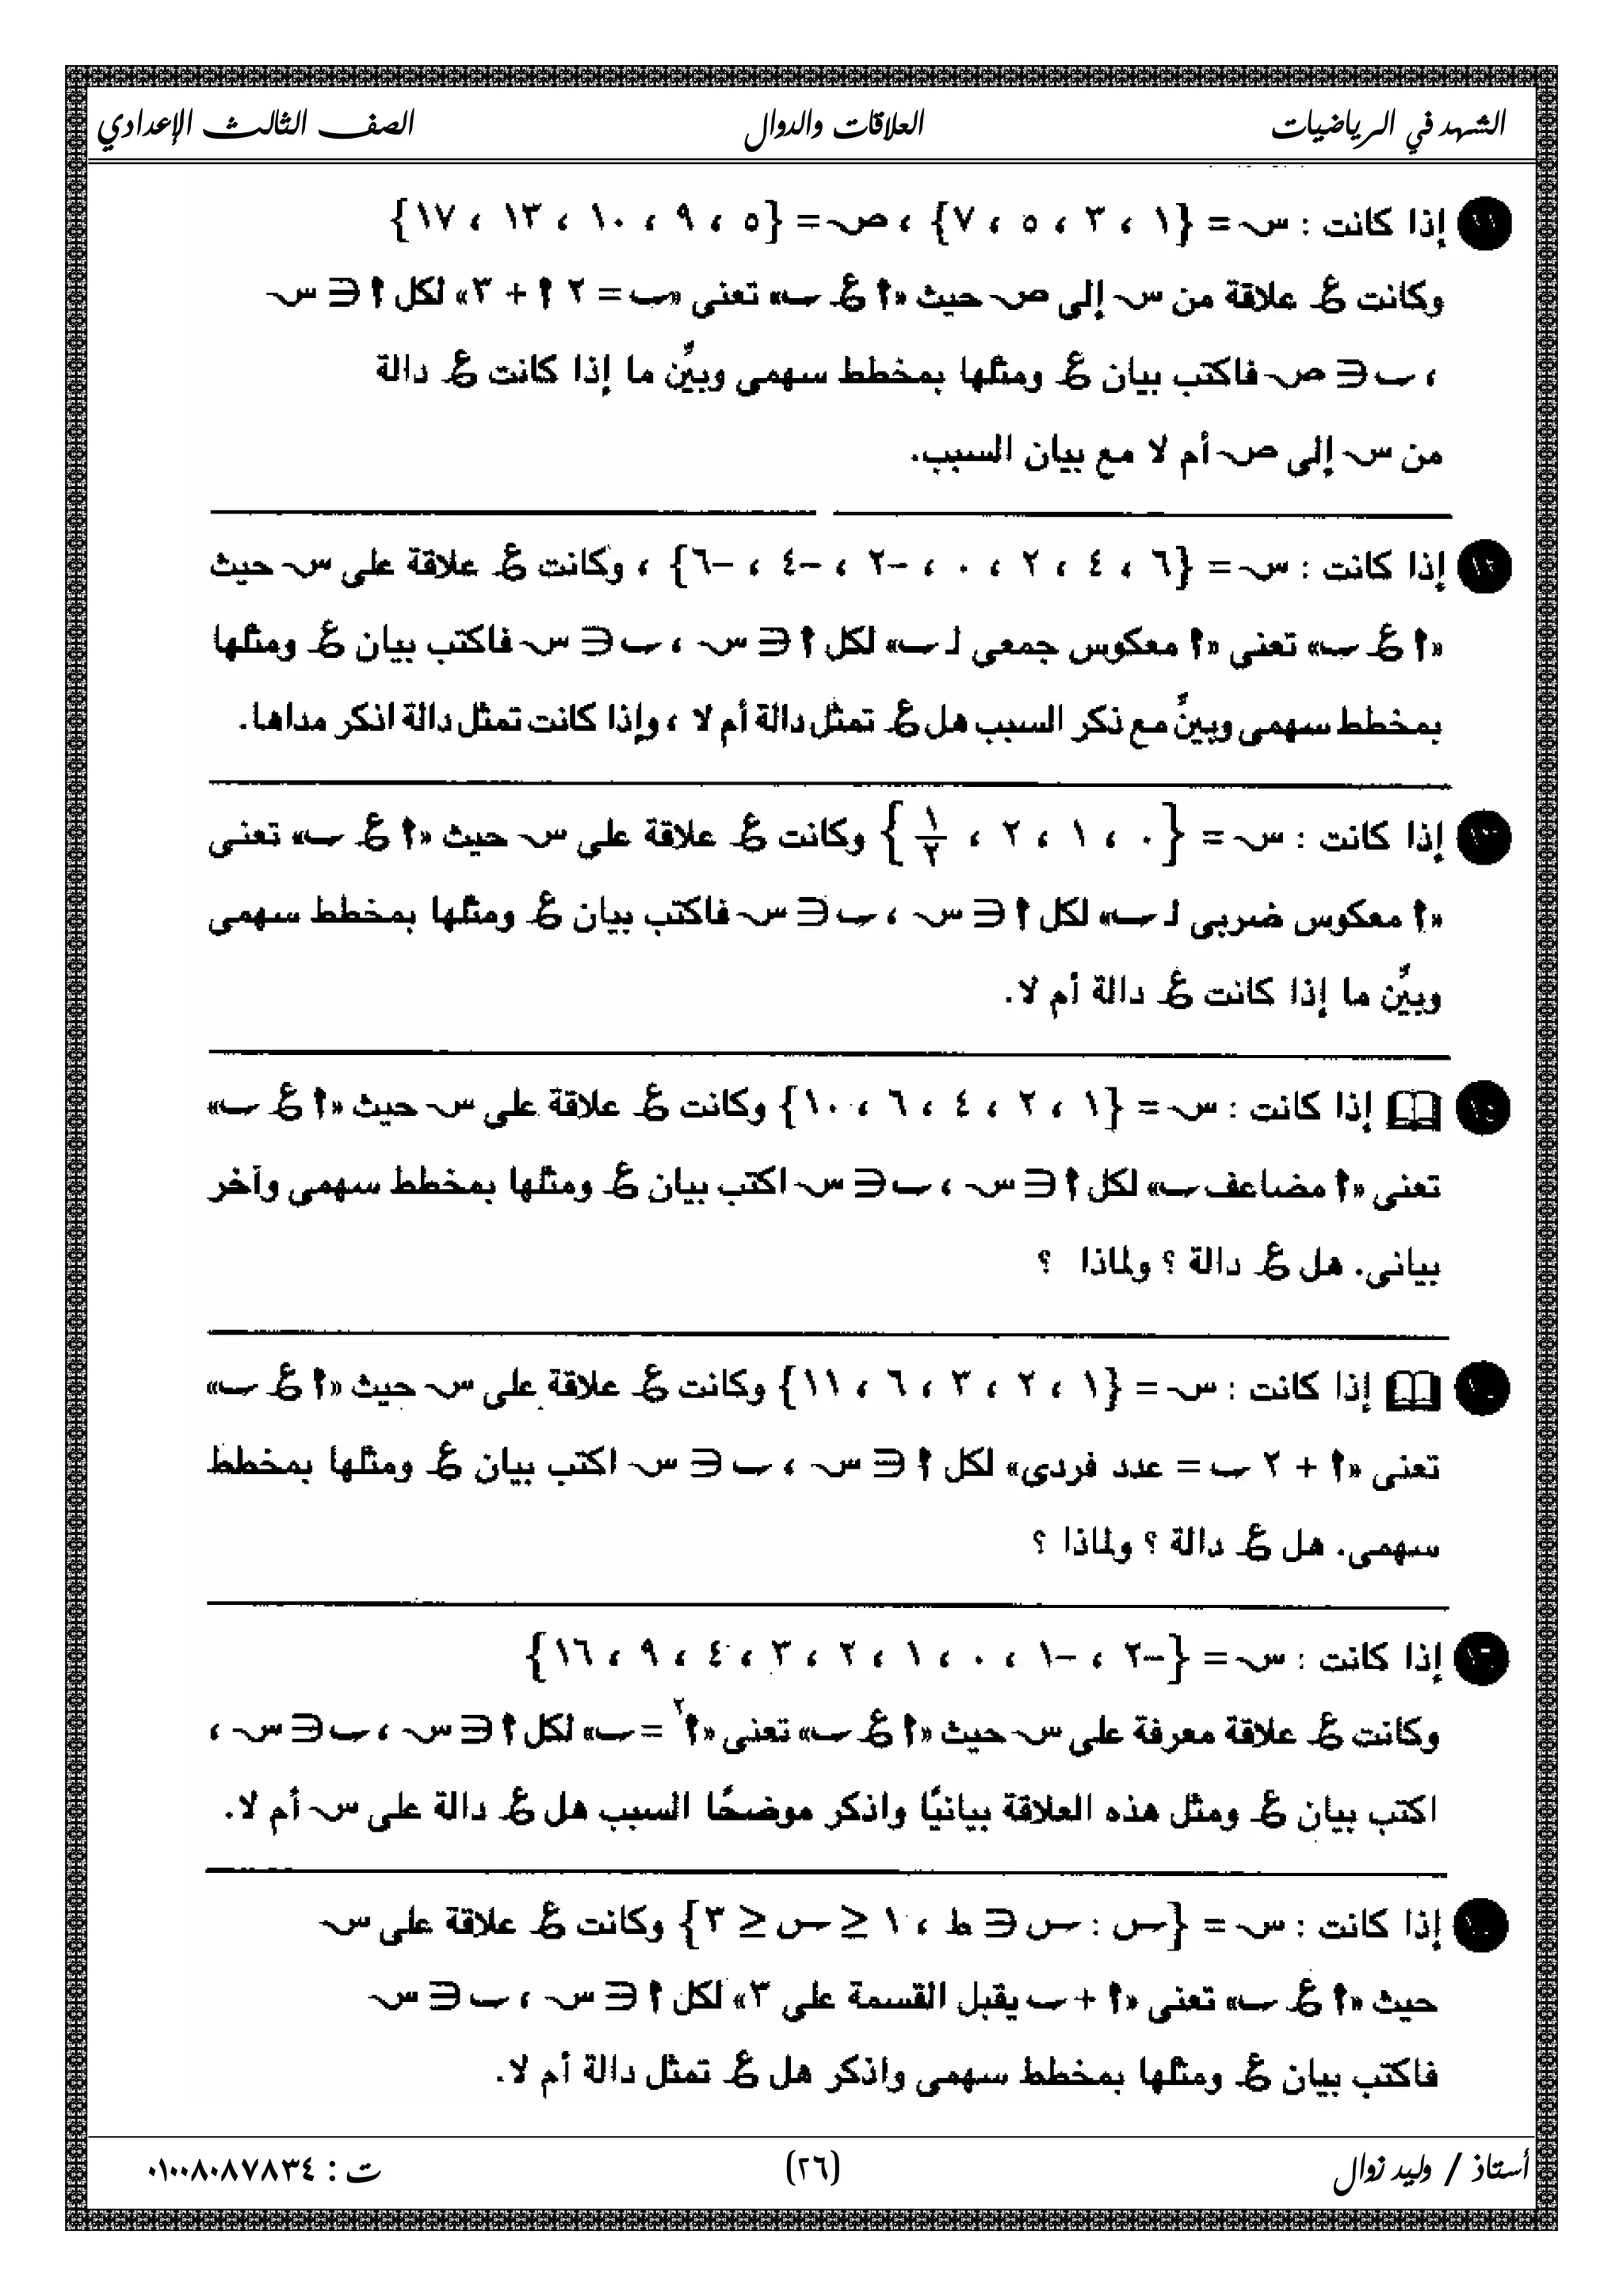 الشهد في الرياضيات العلاقات والدوال الصف الثالث الإعدادي
١١ إذا كانت : س = {١ ، ٣ ، ٥ ، ٧} ، ص = {٥ ، ٩ ، ١٠ ، ١٣ ، ١٧}
وكانت ع علاقة من س إلى ص حيث «أ ع ب» تعنى «ب = ٢ أ + ٣» لكل أ ∈ س
، ب ∈ ص فاكتب بيان ع ومثلها بمخطط سهمى وبيِّن ما إذا كانت ع دالة
من س إلى ص أم لا مع بيان السبب.
١٢ إذا كانت : س = {٦ ، ٤ ، ٢ ، ٠ ، -٢ ، -٤ ، -٦} ، وكانت ع علاقة على س حيث
«أ ع ب» تعنى «أ معكوس جمعى لـ ب» لكل أ ∈ س ، ب ∈ س فاكتب بيان ع ومثلها
بمخطط سهمى وبيِّن مع ذكر السبب هل ع تمثل دالة أم لا ، وإذا كانت تمثل دالة اذكر مداها.
١٣ إذا كانت : س = {٠ ، ١ ، ٢ ، ١/٢} وكانت ع علاقة على س حيث «أ ع ب» تعنى
«أ معكوس ضربى لـ ب» لكل أ ∈ س ، ب ∈ س فاكتب بيان ع ومثلها بمخطط سهمى
وبيِّن ما إذا كانت ع دالة أم لا.
إذا كانت : س = {١ ، ٢ ، ٤ ، ٦ ، ١٠} وكانت ع علاقة على س حيث «أ ع ب»
تعنى «أ مضاعف ب» لكل أ ∈ س ، ب ∈ س اكتب بيان ع ومثلها بمخطط سهمى وآخر
بيانى. هل ع دالة ؟ ولماذا ؟
إذا كانت : س = {١ ، ٢ ، ٣ ، ٦ ، ١١} وكانت ع علاقة على س حيث «أ ع ب»
تعنى «أ + ٢ ب = عدد فردى» لكل أ ∈ س ، ب ∈ س اكتب بيان ع ومثلها بمخطط
سهمى. هل ع دالة ؟ ولماذا ؟
١٦ إذا كانت : س = {-٢ ، -١ ، ٠ ، ١ ، ٢ ، ٣ ، ٤ ، ٩ ، ١٦}
وكانت ع علاقة معرفة على س حيث «أ ع ب» تعنى «أ² = ب» لكل أ ∈ س ، ب ∈ س ،
اكتب بيان ع ومثل هذه العلاقة بيانيًا واذكر موضحًا السبب هل ع دالة على س أم لا.
إذا كانت : س = {س : س ∈ ط ، ١ ≤ س ≤ ٣} وكانت ع علاقة على س
حيث «أ ع ب» تعنى «أ + ب يقبل القسمة على ٣» لكل أ ∈ س ، ب ∈ س
فاكتب بيان ع ومثلها بمخطط سهمى واذكر هل ع تمثل دالة أم لا.
أستاذ / وليد زوال (٢٦) ت : ٠١٠٠٨٠٨٧٨٣٤